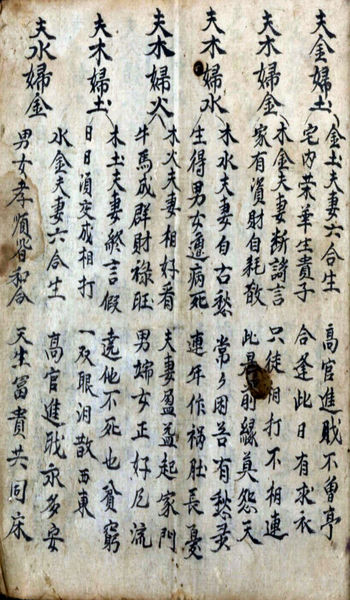 夫金婦土
金土夫妻六合生 高官進戝不曽亭
宅內荣華生貴子 合逢此日有求衣
夫木婦金
木金夫妻断諍言 只徒相打不相連
家有資財自耗散 此是前縁莫怨天
夫木婦水
木水夫妻自古愁 常々困苦有愁
生得男女遭病死 連年作禍肚長憂
夫木婦火
木火夫妻相好看 夫妻盈益起家門
牛馬成群財禄旺 男婦女正好凡流
夫木婦土
木土夫妻終言假 遠他不死也貧窮
日日湏交成相打 一双眼泪散西東
夫水婦金
水金夫妻六合生 高官進戝永多安
男女孝順皆和合 天生冨貴共同床